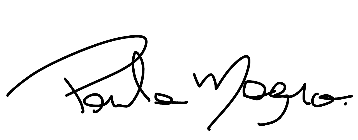 Paula Magro.